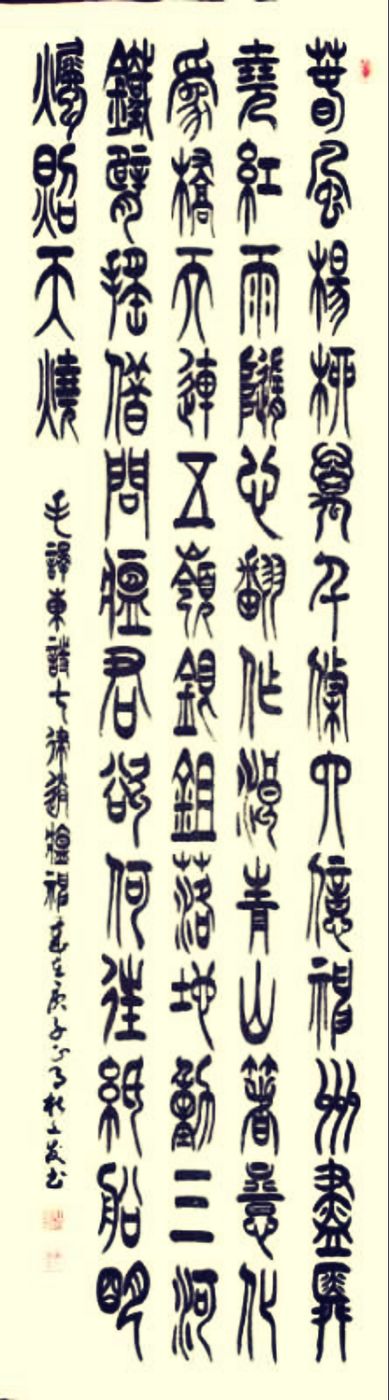 春風楊柳萬千條六億神州盡舜
堯紅雨隨心翻作浪青山著意化
為橋天連五嶺銀鉏落地動三河
鐵臂搖借問瘟君欲何往紙船明
燭照天燒
毛澤東詩七律送瘟神歲在庚子